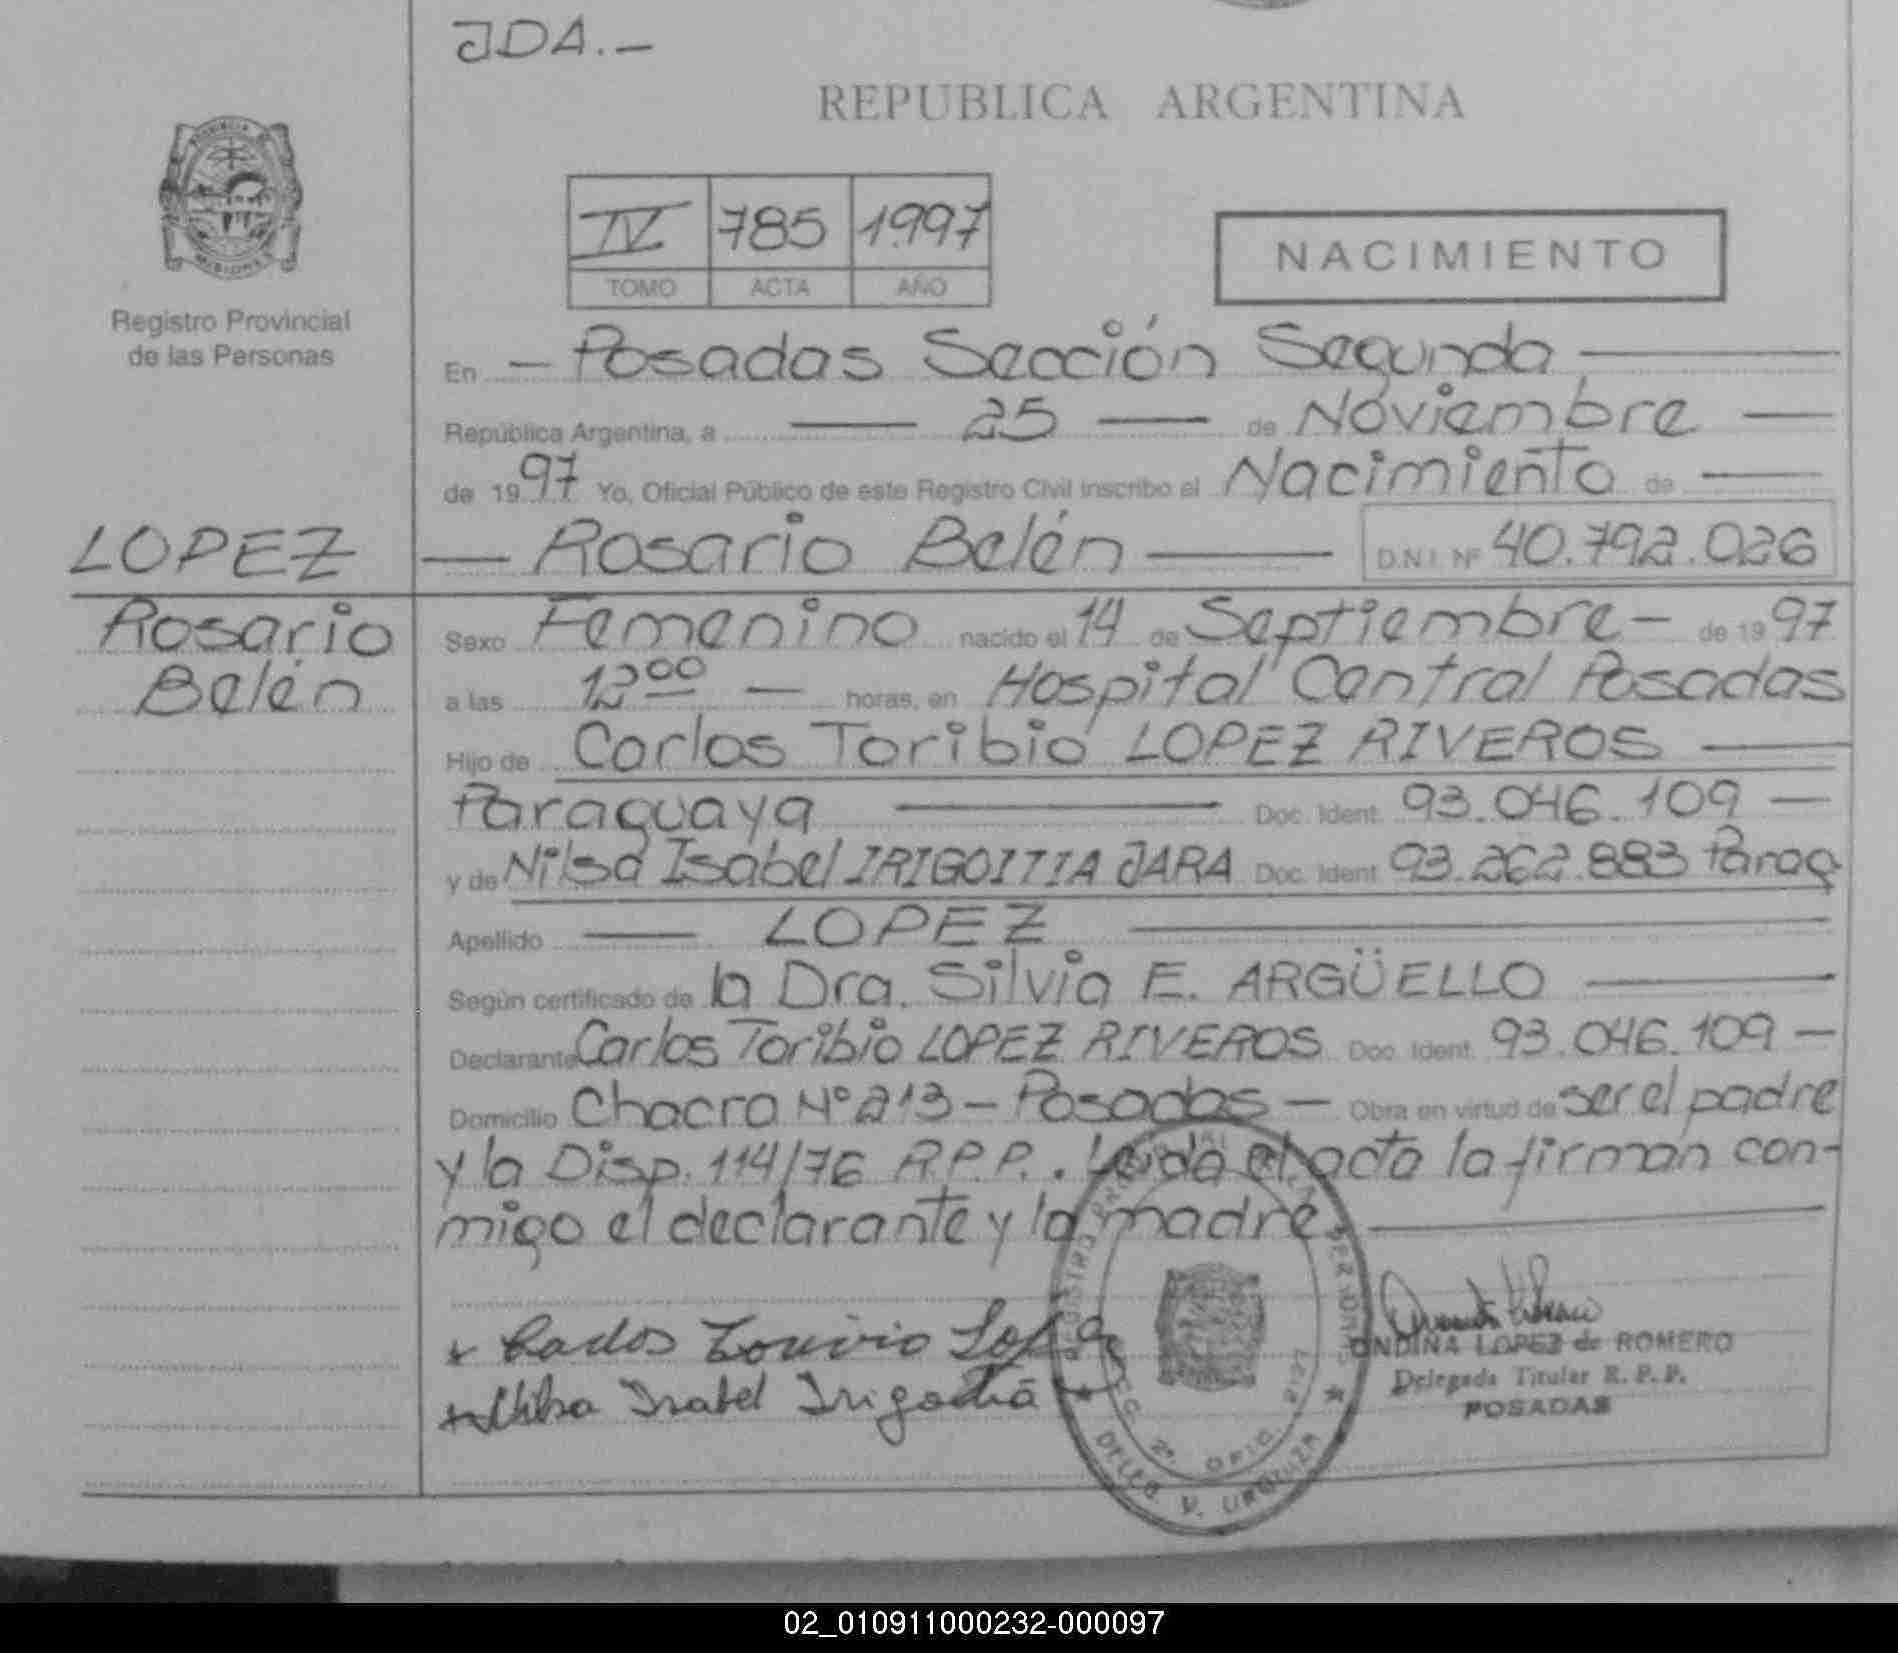 JDA.-
REPUBLICA ARGENTINA
PROVINCIA
MISIONES
Registro Provincial
de las Personas
IV 785 1997
TOMO ACTA AÑO
NACIMIENTO
En - Posadas Sección Segunda
República Argentina, a 25 de Noviembre
de 1997 Yo, Oficial Público de este Registro Civil inscribo el Nacimiento de
LOPEZ - Rosario Belén D.N.I. Nº 40.792.026
Rosario
Belén
Sexo Femenino nacido el 14 de Septiembre - de 1997
a las 12⁰⁰ - horas, en Hospital Central Posadas
Hijo de Carlos Toribio LOPEZ RIVEROS
Paraguaya Doc. Ident. 93.046.109 -
y de Nilsa Isabel IRIGOITIA JARA Doc. Ident. 93.262.883 Parag
Apellido LOPEZ
Según certificado de la Dra. Silvia E. ARGÜELLO
Declarante Carlos Toribio LOPEZ RIVEROS Doc. Ident. 93.046.109 -
Domicilio Chacra Nº 213 - Posadas - Obra en virtud de ser el padre
y la Disp. 114/76 R.P.P.. Leída el acta la firman con-
migo el declarante y la madre
Carlos Torivio Lopez
Nilsa Isabel Irigoitia
ONDINA LOPEZ de ROMERO
Delegada Titular R. P. P.
POSADAS
REGISTRO PROVINCIAL DE LAS PERSONAS
SECC. 2ª. OFIC. 2197
DELEG. V. URQUIZA
02_010911000232-000097